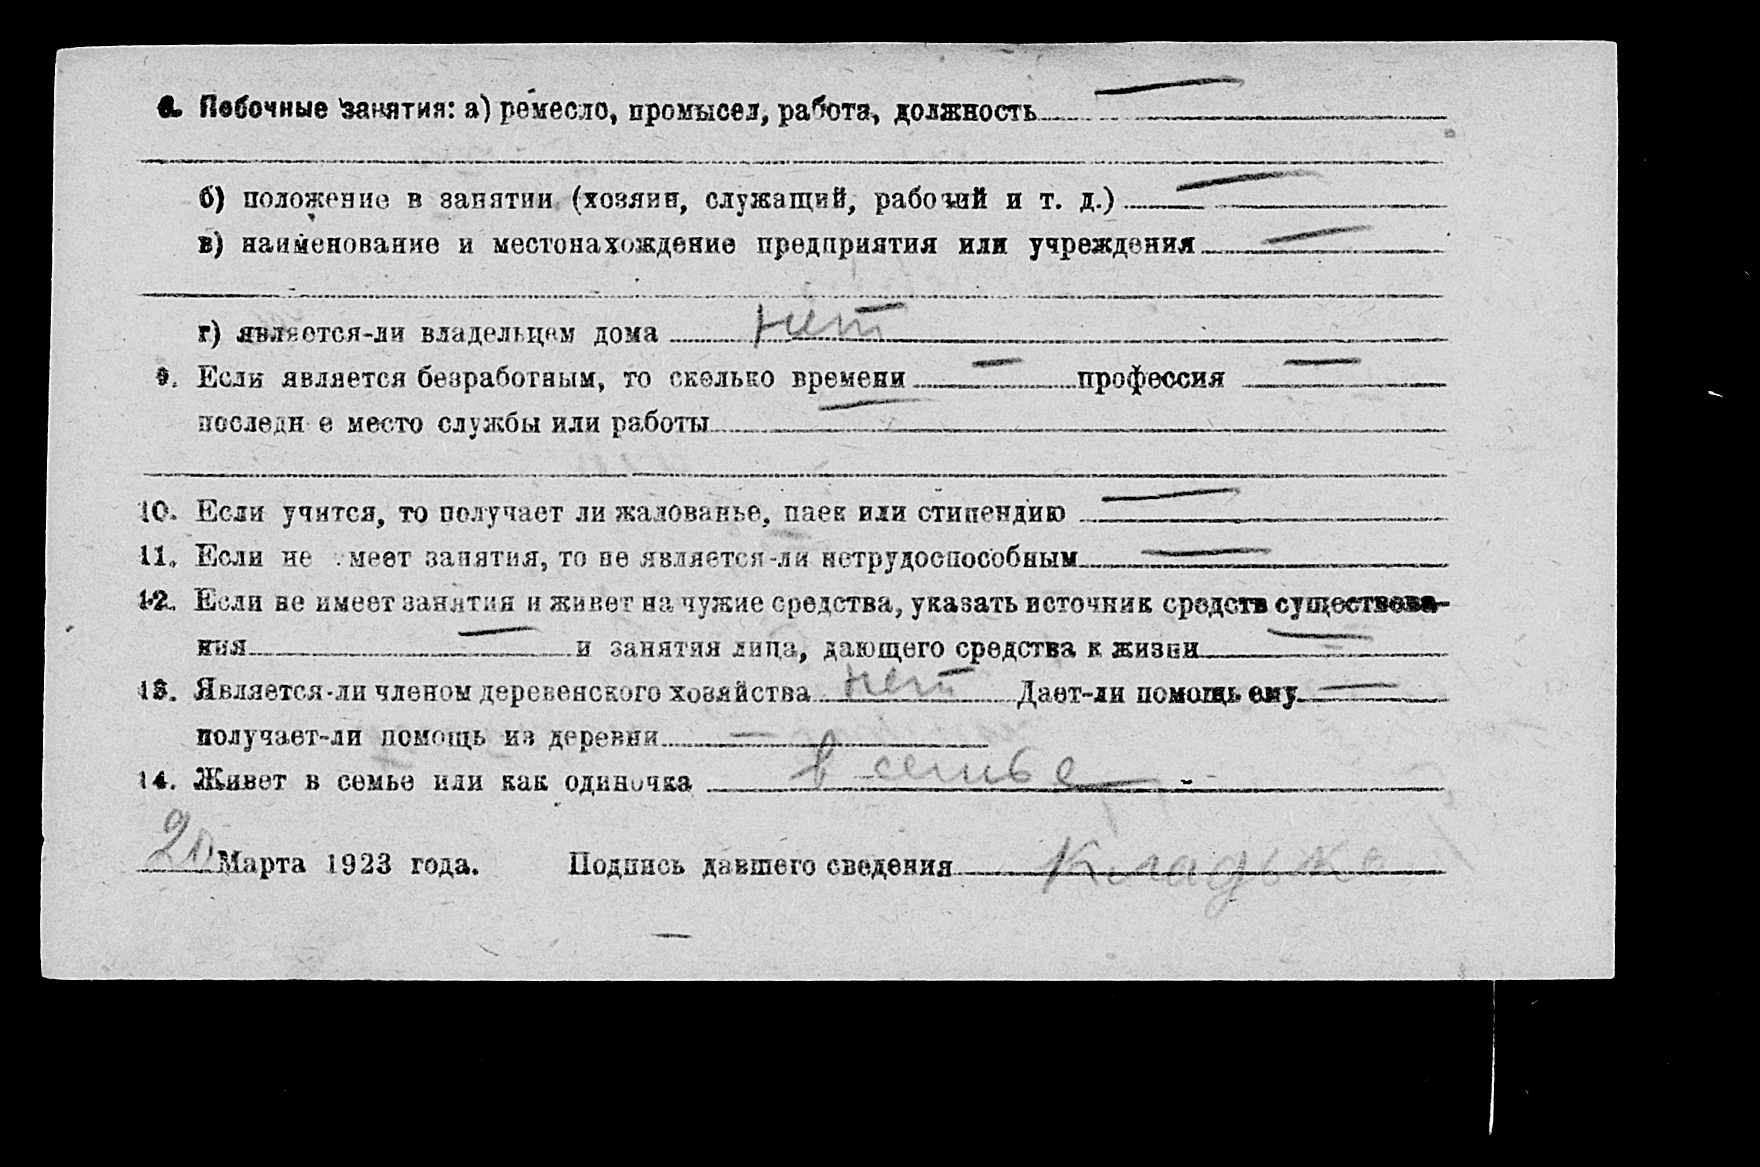 8. Побочные занятия: а) ремесло, промысел, работа, должность —
б) положение в занятии (хозяин, служащий, рабочий и т. д.) —
в) наименование и местонахождение предприятия или учреждения —
г) является-ли владельцем дома нет
9. Если является безработным, то сколько времени — профессия —
последн е место службы или работы —
10. Если учится, то получает ли жалованье, паек или стипендию —
11. Если не имеет занятия, то не является-ли нетрудоспособным —
12. Если не имеет занятия и живет на чужие средства, указать источник средств существова-
ния — и занятия лица, дающего средства к жизни —
13. Является-ли членом деревенского хозяйства нет Дает-ли помощь ему —
получает-ли помощь из деревни —
14. Живет в семье или как одиночка в семье
20 Марта 1923 года. Подпись давшего сведения